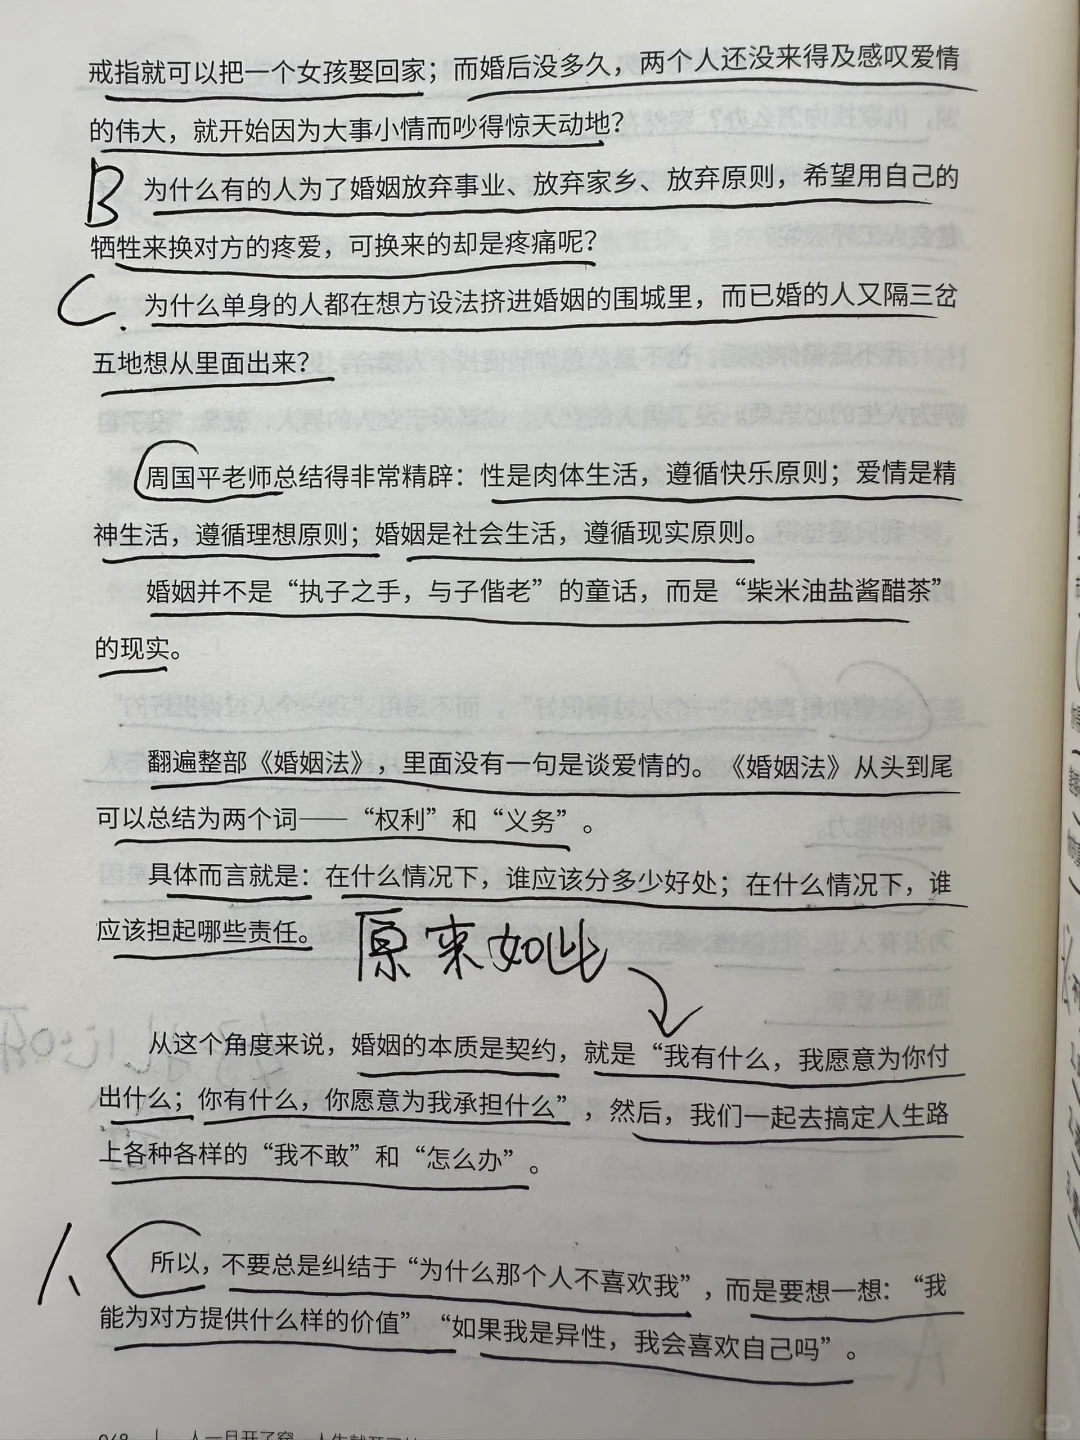 戒指就可以把一个女孩娶回家；而婚后没多久，两个人还没来得及感叹爱情
的伟大，就开始因为大事小情而吵得惊天动地？
B
为什么有的人为了婚姻放弃事业、放弃家乡、放弃原则，希望用自己的
牺牲来换对方的疼爱，可换来的却是疼痛呢？
C.
为什么单身的人都在想方设法挤进婚姻的围城里，而已婚的人又隔三岔
五地想从里面出来？
周国平老师总结得非常精辟：性是肉体生活，遵循快乐原则；爱情是精
神生活，遵循理想原则；婚姻是社会生活，遵循现实原则。
婚姻并不是“执子之手，与子偕老”的童话，而是“柴米油盐酱醋茶”
的现实。
翻遍整部《婚姻法》，里面没有一句是谈爱情的。《婚姻法》从头到尾
可以总结为两个词——“权利”和“义务”。
具体而言就是：在什么情况下，谁应该分多少好处；在什么情况下，谁
应该担起哪些责任。
原来如此
从这个角度来说，婚姻的本质是契约，就是“我有什么，我愿意为你付
出什么；你有什么，你愿意为我承担什么”，然后，我们一起去搞定人生路
上各种各样的“我不敢”和“怎么办”。
所以，不要总是纠结于“为什么那个人不喜欢我”，而是要想一想：“我
能为对方提供什么样的价值”“如果我是异性，我会喜欢自己吗”。